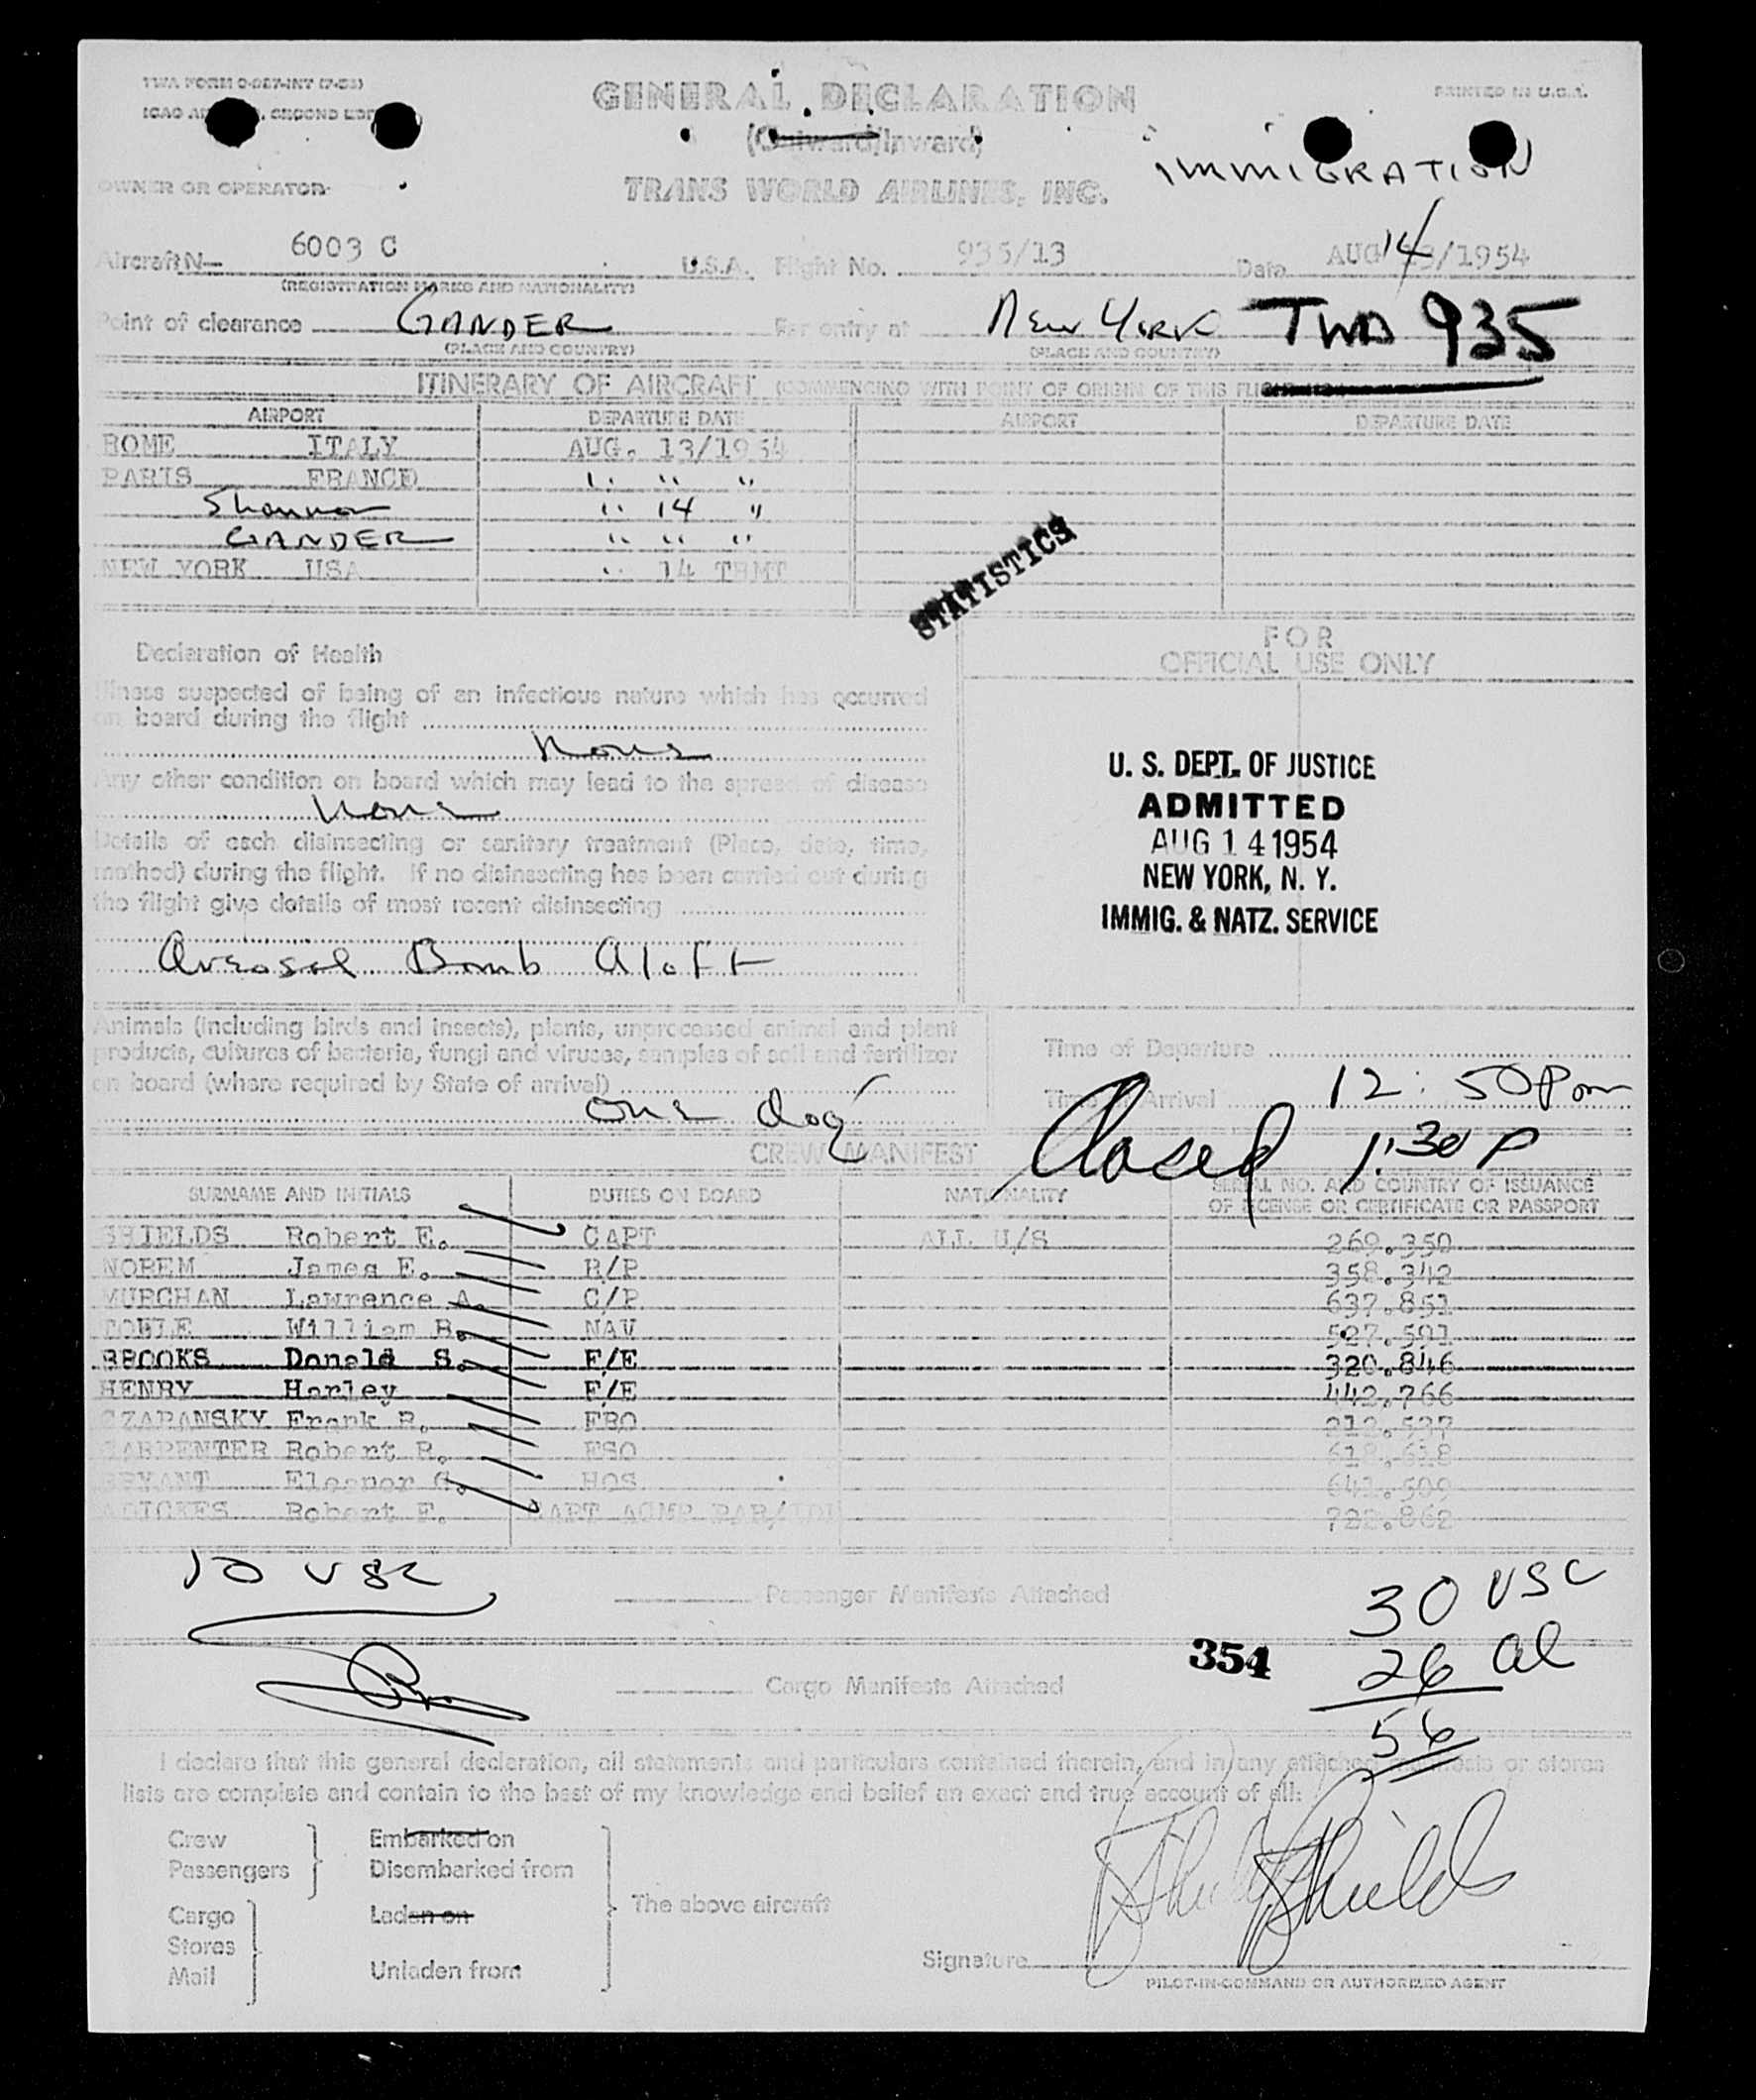 TWA FORM O-087-INT (7-53)
GENERAL DECLARATION
PRINTED IN U.S.A.
(Outward/Inward)
IMMIGRATION
OWNER OR OPERATOR
TRANS WORLD AIRLINES, INC.
Aircraft N— 6003 C U.S.A. Flight No. 935/13 Date AUG 14/1954
(REGISTRATION MARKS AND NATIONALITY)
Point of clearance GANDER For entry at New York TWA 935
(PLACE AND COUNTRY) (PLACE AND COUNTRY)
ITINERARY OF AIRCRAFT (COMMENCING WITH POINT OF ORIGIN OF THIS FLIGHT)
AIRPORT DEPARTURE DATE AIRPORT DEPARTURE DATE
ROME ITALY AUG. 13/1954
PARIS FRANCE " " "
Shannon " 14 "
GANDER " " "
NEW YORK USA " 14 TRMT
STATISTICS
Declaration of Health
FOR
OFFICIAL USE ONLY
Illness suspected of being of an infectious nature which has occurred
on board during the flight
None
Any other condition on board which may lead to the spread of disease
None
Details of each disinsecting or sanitary treatment (Place, date, time,
method) during the flight. If no disinsecting has been carried out during
the flight give details of most recent disinsecting
Areosol Bomb Aloft
U. S. DEPT. OF JUSTICE
ADMITTED
AUG 14 1954
NEW YORK, N. Y.
IMMIG. & NATZ. SERVICE
Animals (including birds and insects), plants, unprocessed animal and plant
products, cultures of bacteria, fungi and viruses, samples of soil and fertilizer
on board (where required by State of arrival)
one dog
Time of Departure
Time of Arrival 12:50 Pm
Closed 1:30 P
CREW MANIFEST
SURNAME AND INITIALS DUTIES ON BOARD NATIONALITY SERIAL NO. AND COUNTRY OF ISSUANCE
OF LICENSE OR CERTIFICATE OR PASSPORT
SHIELDS Robert E. CAPT ALL U/S 269.350
NOREM James E. R/P 358.342
MURCHAN Lawrence A. C/P 637.851
TOBLE William B. NAV 527.591
BROOKS Donald S. F/E 320.846
HENRY Harley F/E 442.766
CZAPANSKY Frank R. FRO 212.537
CARPENTER Robert R. FSO 618.638
BRYANT Eleanor G. HOS 641.509
Robert F. 722.862
10 USC
Passenger Manifests Attached
30 USC
354
26 al
Cargo Manifests Attached
56
I declare that this general declaration, all statements and particulars contained therein, and in any attached manifests or stores
lists are complete and contain to the best of my knowledge and belief an exact and true account of all:
Crew Embarked on
Passengers Disembarked from
The above aircraft
Cargo Laden on
Stores
Mail Unladen from
Signature Shields
PILOT-IN-COMMAND OR AUTHORIZED AGENT